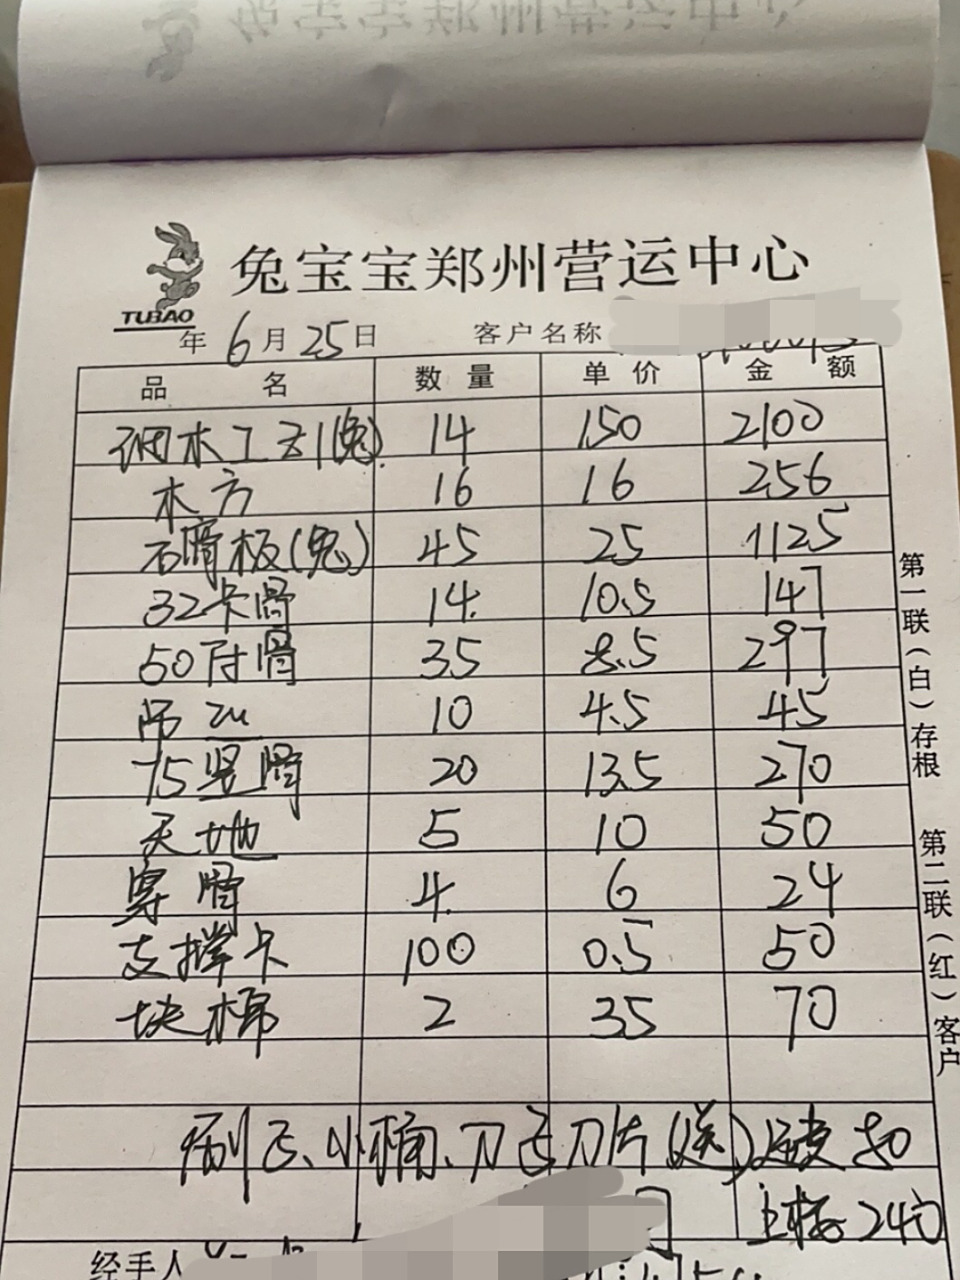 兔宝宝郑州营运中心
TUBAO
年 6月25日 客户名称
品名 数量 单价 金额
木工 (兔) 14 150 2100
木方 16 16 256
石膏板(兔) 45 25 1125
32卡骨 14 10.5 147
50付骨 35 8.5 297
吊 10 4.5 45
75竖骨 20 13.5 270
天地 5 10 50
穿骨 4 6 24
支撑卡 100 0.5 50
块棉 2 35 70
刷子、小桶、刀子刀片(送)
240
经手人
第一联(白)存根
第二联(红)客户